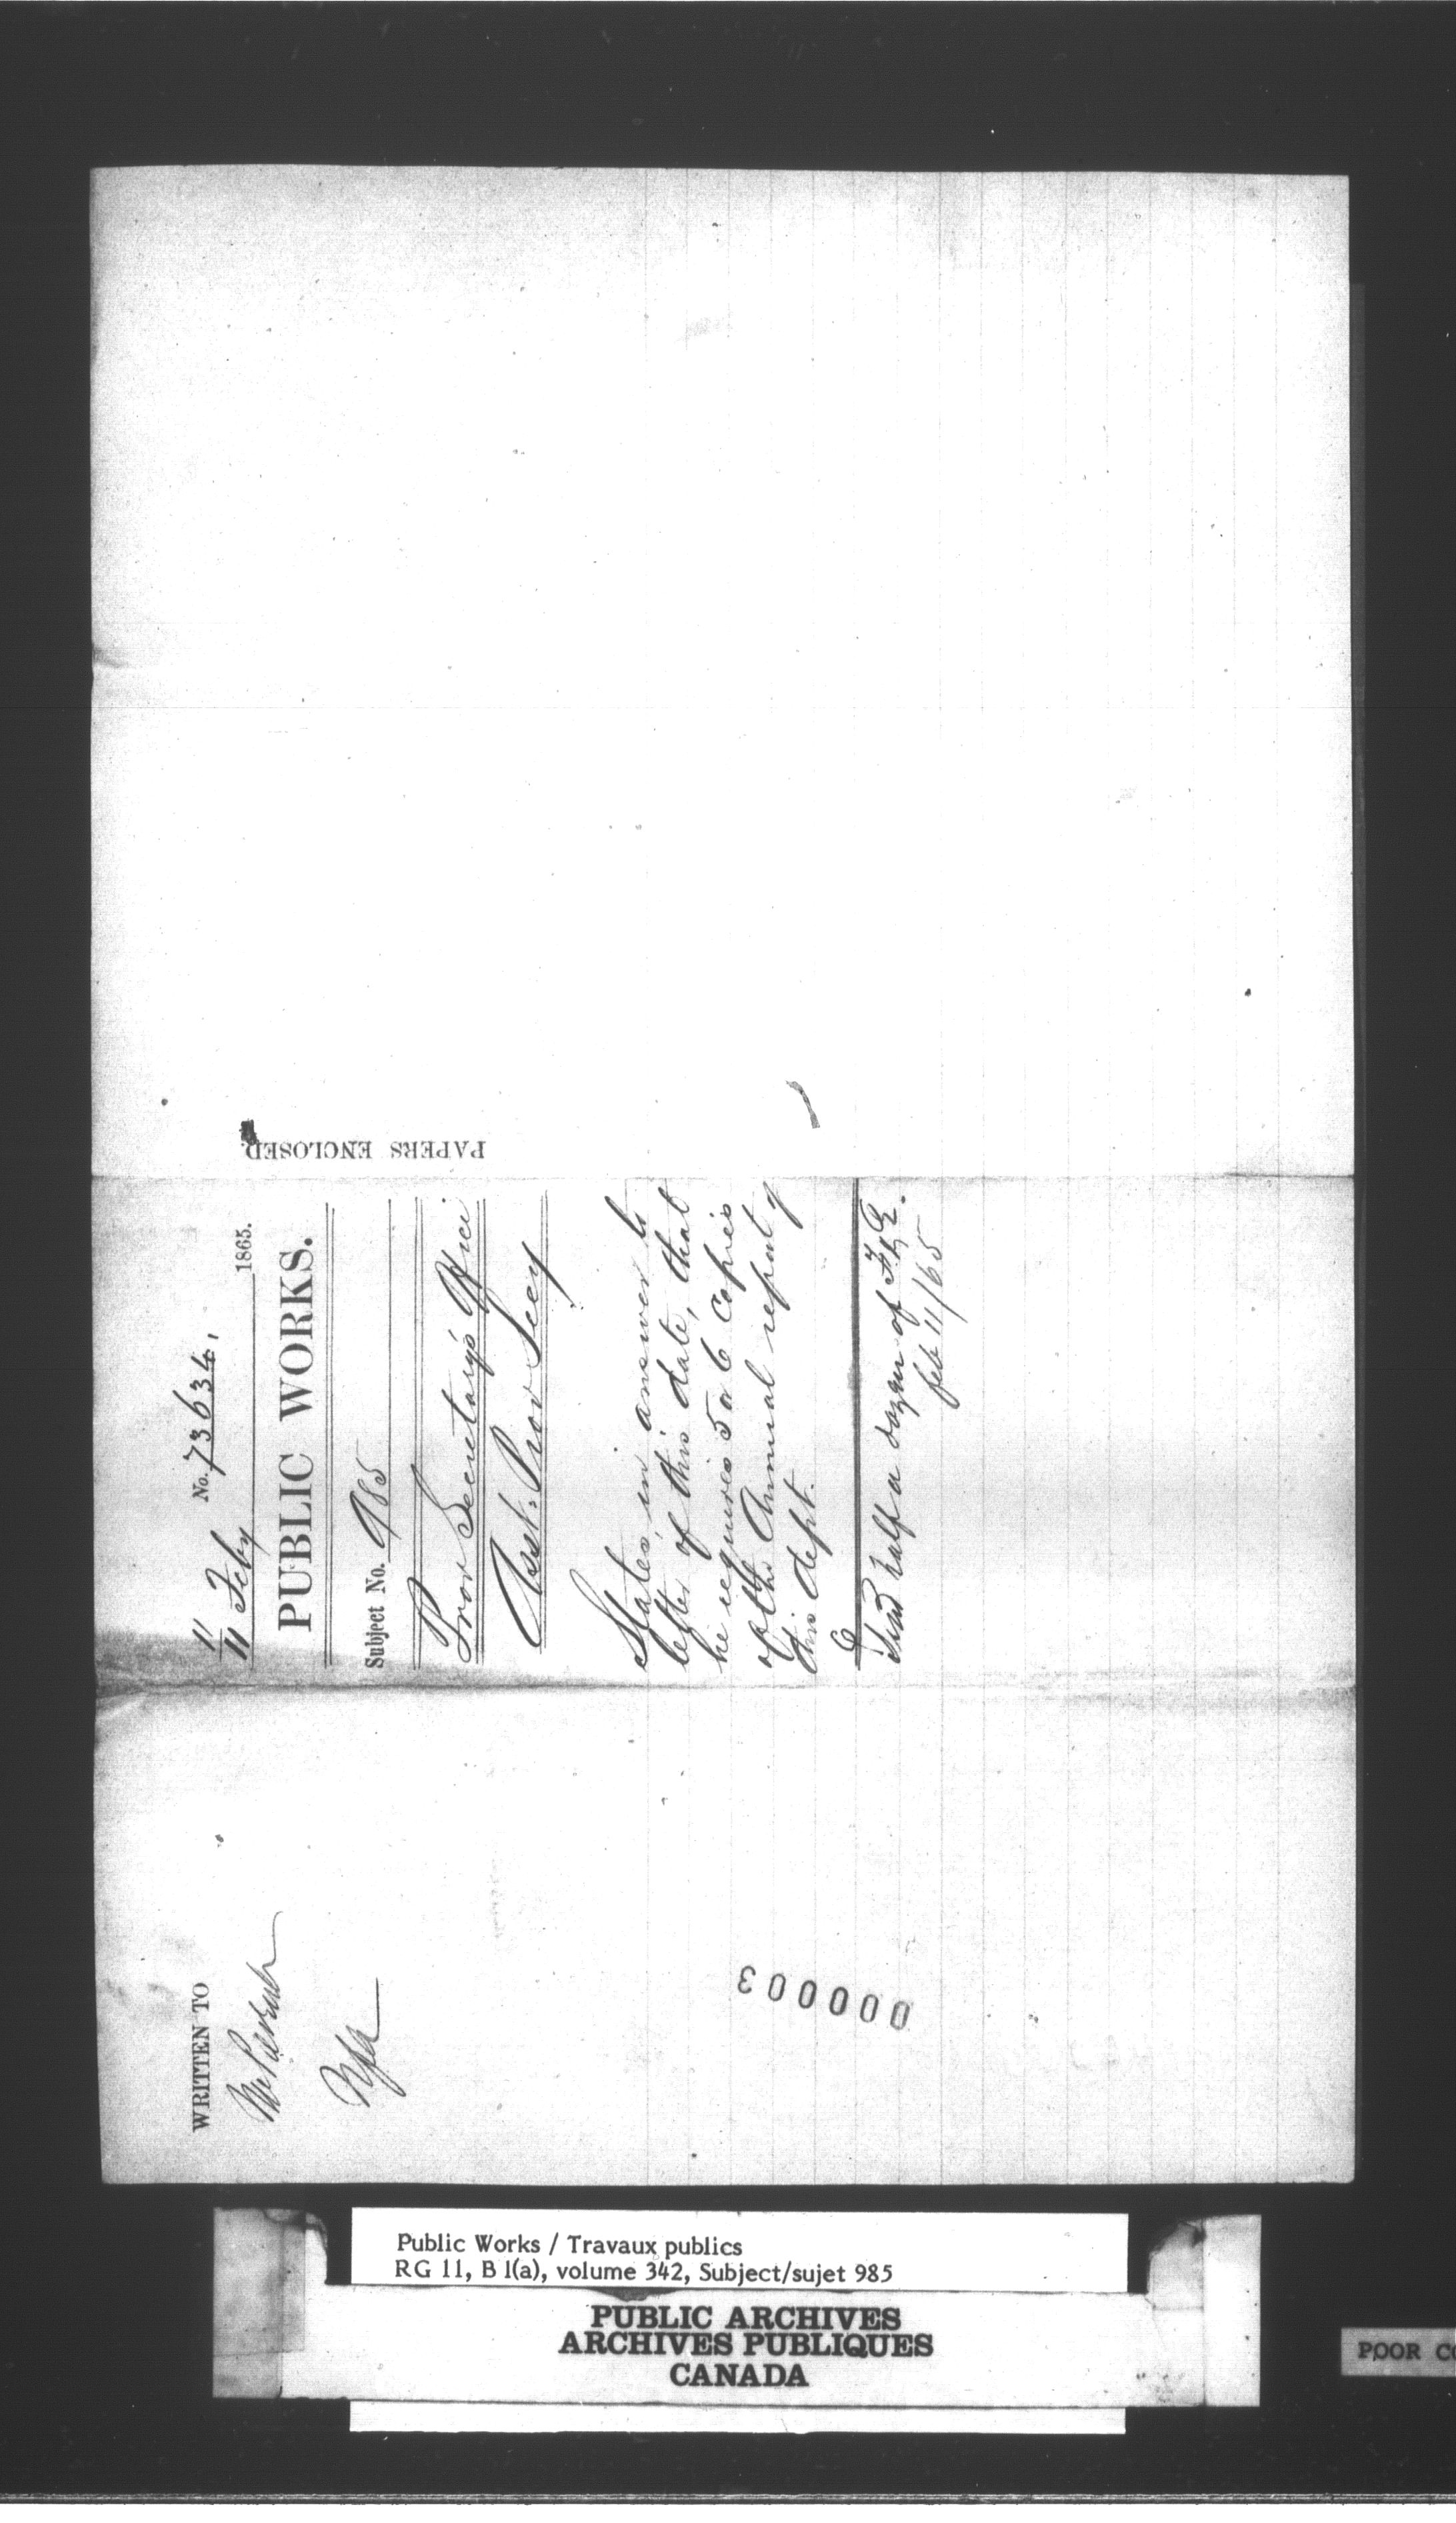 11
11 Feby No. 73634. 1865.
PUBLIC WORKS.
Subject No. 985
Prov Secretary's Office
Asst. Prov Secy
States, in answer to
letter of this date, that
he requires 5 or 6 copies
of the Annual report of
this dept.
Send half a dozen of
feb 11/65
PAPERS ENCLOSED.
WRITTEN TO
000003
Public Works / Travaux publics
RG 11, B 1(a), volume 342, Subject/sujet 985
PUBLIC ARCHIVES
ARCHIVES PUBLIQUES
CANADA
POOR CO